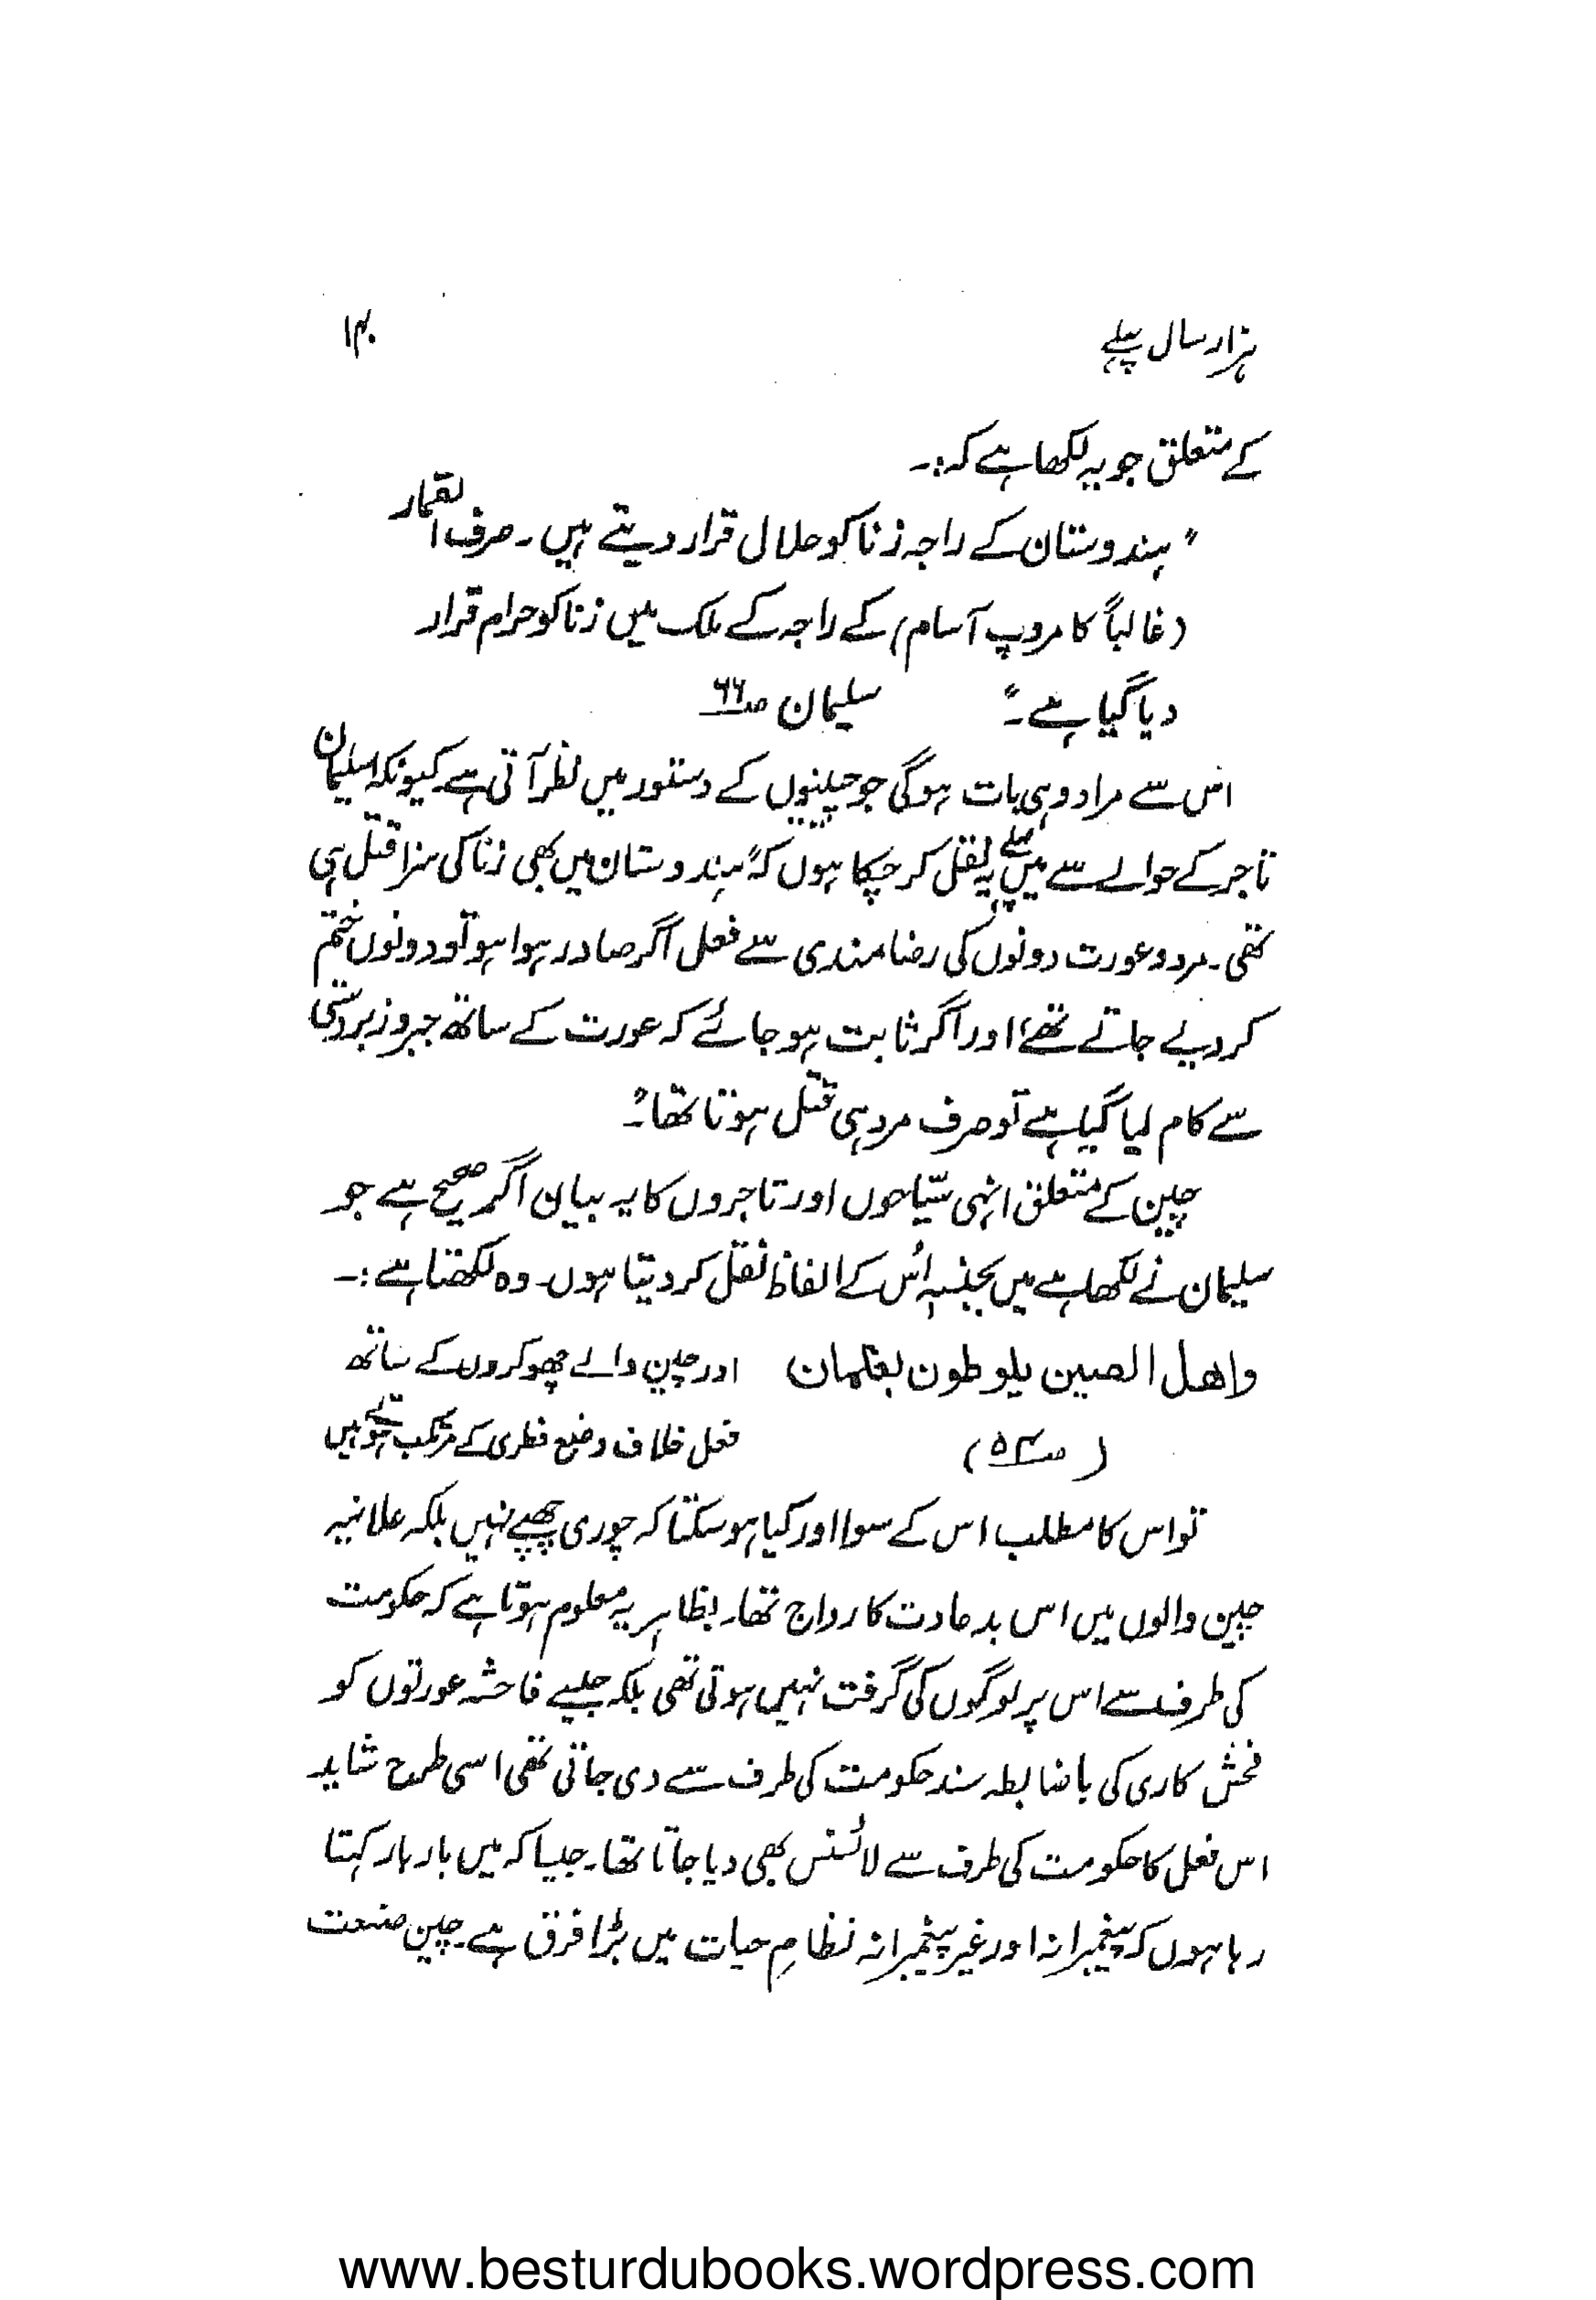 ہزار سال پہلے
۱۴۰
کے متعلق جو یہ لکھا ہے کہ:۔
"ہندوستان کے راجہ زنا کو حلال قرار دیتے ہیں۔ صرف القمار
(غالباً کامروپ آسام) کے راجہ کے ملک میں زنا کو حرام قرار
دیا گیا ہے۔" سلیمان صـ۶۶
اس سے مراد وہی بات ہوگی جو چینیوں کے دستور میں نظر آتی ہے کیونکہ سلیمان
تاجر کے حوالے سے میں پہلے یہ نقل کر چکا ہوں کہ "ہندوستان میں بھی زنا کی سزا قتل ہی
تھی۔ مرد و عورت دونوں کی رضامندی سے فعل اگر صادر ہوا ہو تو دونوں ختم
کر دیے جاتے تھے؛ اور اگر ثابت ہو جائے کہ عورت کے ساتھ جبر و زبردستی
سے کام لیا گیا ہے تو صرف مرد ہی قتل ہوتا تھا"۔
چین کے متعلق انہی سیّاحوں اور تاجروں کا یہ بیان اگر صحیح ہے جو
سلیمان نے لکھا ہے میں بجنسہٖ اُس کے الفاظ نقل کر دیتا ہوں۔ وہ لکھتا ہے:۔
واھل الصین یلوطون بغلمان
(صـ۵۴)
اور چین والے چھوکروں کے ساتھ
فعل خلاف وضع فطری کے مرتکب ہوتے ہیں
تو اس کا مطلب اس کے سوا اور کیا ہو سکتا کہ چوری چھپے نہیں بلکہ علانیہ
چین والوں میں اس بدعادت کا رواج تھا۔ بظاہر یہ معلوم ہوتا ہے کہ حکومت
کی طرف سے اس پر لوگوں کی گرفت نہیں ہوتی تھی بلکہ جیسے فاحشہ عورتوں کو
فحش کاری کی باضابطہ سند حکومت کی طرف سے دی جاتی تھی اسی طرح شاید
اس فعل کا حکومت کی طرف سے لائسنس بھی دیا جاتا تھا۔ جیسا کہ میں بار بار کہتا
رہا ہوں کہ پیغمبرانہ اور غیر پیغمبرانہ نظامِ حیات میں بڑا فرق ہے۔ چین صنعت
www.besturdubooks.wordpress.com